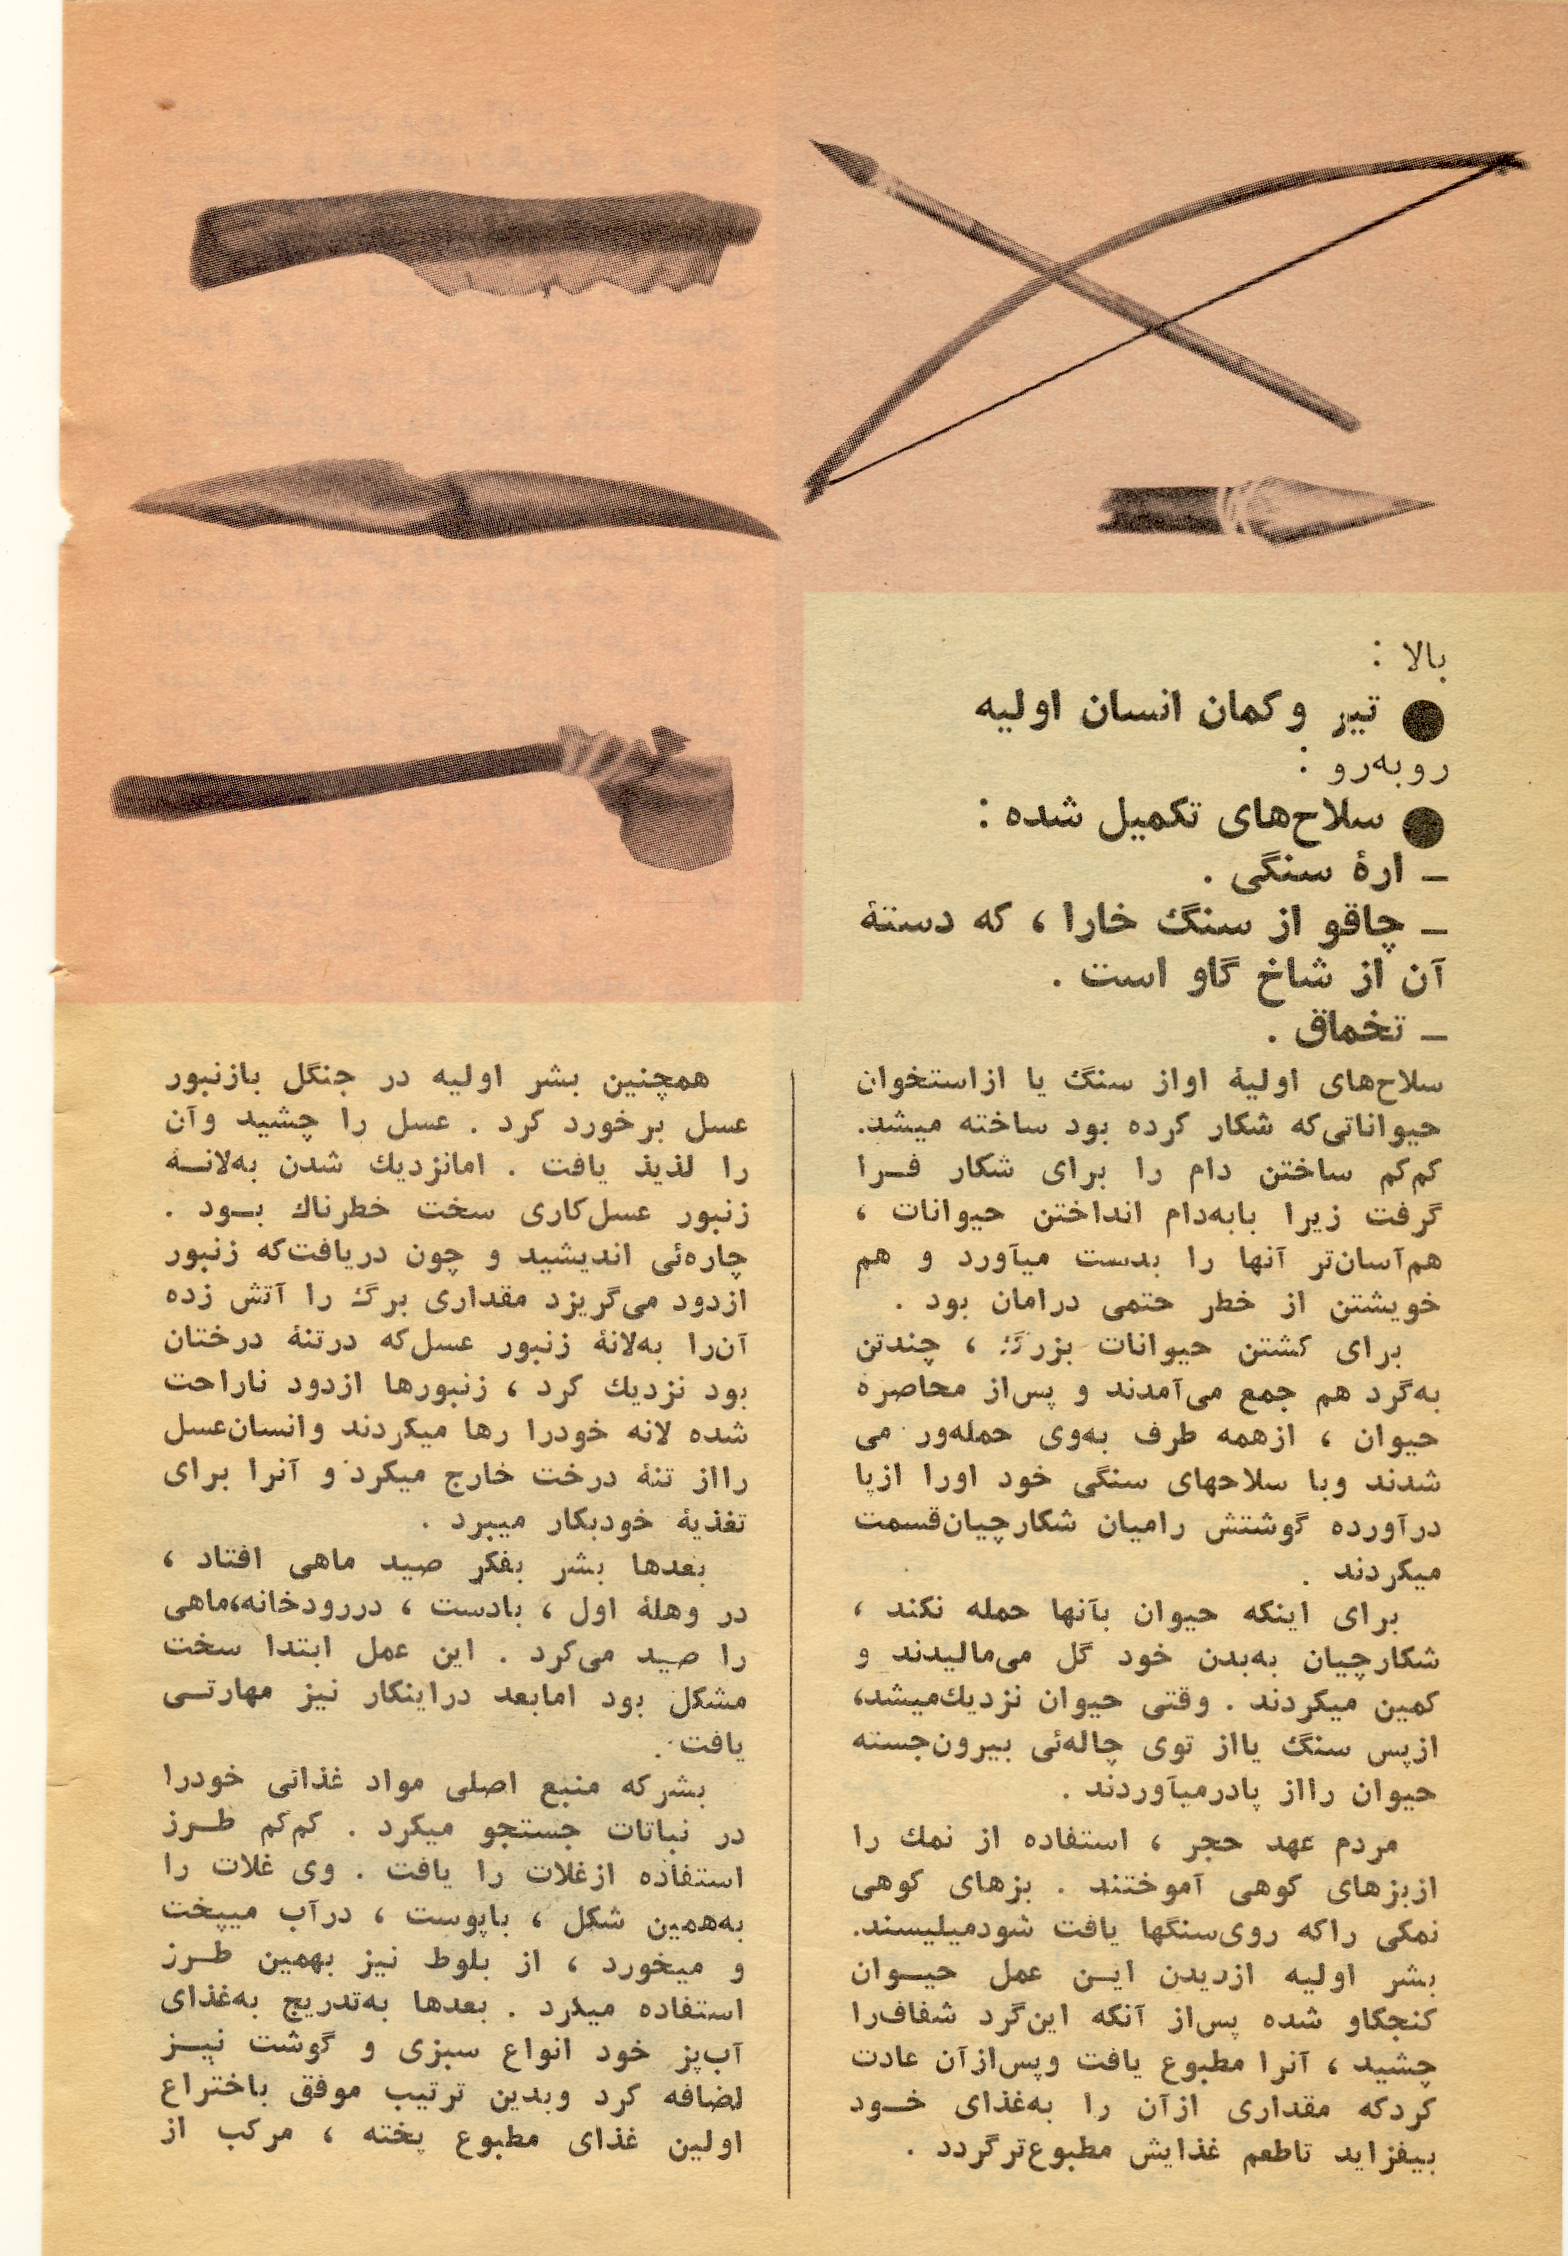 بالا :
● تیر و کمان انسان اولیه
روبه‌رو :
● سلاح‌های تکمیل شده :
ـ ارهٔ سنگی .
ـ چاقو از سنگ خارا ، که دستهٔ
آن از شاخ گاو است .
ـ تخماق .
سلاح‌های اولیهٔ اواز سنگ یا ازاستخوان
حیواناتی‌که شکار کرده بود ساخته میشد.
کم‌کم ساختن دام را برای شکار فـرا
گرفت زیرا بابه‌دام انداختن حیوانات ،
هم‌آسان‌تر آنها را بدست میآورد و هم
خویشتن از خطر حتمی درامان بود .
برای کشتن حیوانات بزرگ ، چندتن
به‌گرد هم جمع می‌آمدند و پس‌از محاصره
حیوان ، ازهمه طرف به‌وی حمله‌ور می
شدند وبا سلاحهای سنگی خود اورا ازپا
درآورده گوشتش رامیان شکارچیان‌قسمت
میکردند .
برای اینکه حیوان بآنها حمله نکند ،
شکارچیان به‌بدن خود گل می‌مالیدند و
کمین میکردند . وقتی حیوان نزدیك‌میشد،
ازپس سنگ یااز توی چاله‌ئی بیرون‌جسته
حیوان رااز پادرمیآوردند .
مردم عهد حجر ، استفاده از نمك را
ازبزهای کوهی آموختند . بزهای کوهی
نمکی راکه روی‌سنگها یافت شودمیلیسند.
بشر اولیه ازدیدن ایـن عمل حیـوان
کنجکاو شده پس‌از آنکه این‌گرد شفاف‌را
چشید ، آنرا مطبوع یافت وپس‌ازآن عادت
کردکه مقداری ازآن را به‌غذای خـود
بیفزاید تاطعم غذایش مطبوع‌ترگردد .
همچنین بشر اولیه در جنگل بازنبور
عسل برخورد کرد . عسل را چشید وآن
را لذیذ یافت . امانزدیك شدن به‌لانـه
زنبور عسل‌کاری سخت خطرناك بـود .
چاره‌ئی اندیشید و چون دریافت‌که زنبور
ازدود می‌گریزد مقداری برگ را آتش زده
آن‌را به‌لانهٔ زنبور عسل‌که درتنهٔ درختان
بود نزدیك کرد ، زنبورها ازدود ناراحت
شده لانه خودرا رها میکردند وانسان‌عسل
رااز تنهٔ درخت خارج میکرد و آنرا برای
تغذیهٔ خودبکار میبرد .
بعدها بشر بفکر صید ماهی افتاد ،
در وهلهٔ اول ، بادست ، دررودخانه،ماهی
را صید می‌کرد . این عمل ابتدا سخت
مشکل بود امابعد دراینکار نیز مهارتـی
یافت .
بشرکه منبع اصلی مواد غذائی خودرا
در نباتات جستجو میکرد . کم‌کم طـرز
استفاده ازغلات را یافت . وی غلات را
به‌همین شکل ، باپوست ، درآب میپخت
و میخورد ، از بلوط نیز بهمین طـرز
استفاده میکرد . بعدها به‌تدریج به‌غذای
آب‌پز خود انواع سبزی و گوشت نیـز
اضافه کرد وبدین ترتیب موفق باختراع
اولین غذای مطبوع پخته ، مرکب از